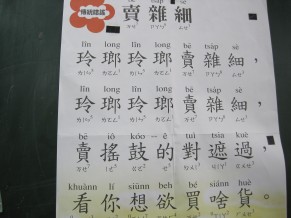 傳統唸謠
賣雜細
lîn long lîn long bē tsa̍p sè
玲瑯玲瑯賣雜細，
lîn long lîn long bē tsa̍p sè
玲瑯玲瑯賣雜細，
bē iô kóo ê tuì tsia kuè
賣搖鼓的對遮過，
khuànn lí siūnn beh bé siánn huè
看你想欲買啥貨。